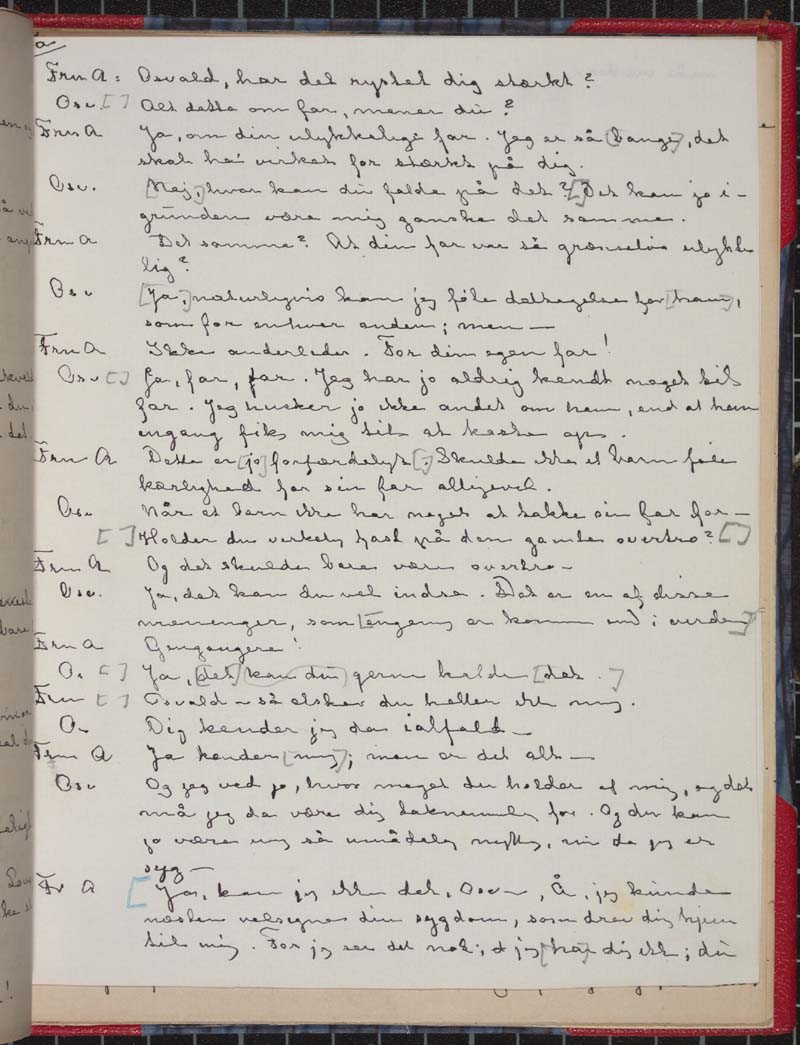 Fru A: Osvald, har det rystet dig stærkt?
Osv. [ ] Alt dette om far, mener du?
Fru A Ja, om din ulykkelige far. Jeg er så [bange], det
skal ha' virket for stærkt på dig.
Osv. [Nej,] hvor kan du falde på det? [ ] Det kan jo i-
grunden være mig ganske det samme.
Fru A Det samme? At din far var så grænseløs ulykke
lig?
Osv [Ja,] naturligvis kan jeg føle deltagelse for [ham],
som for enhver anden; men —
Fru A Ikke anderledes. For din egen far!
Osv [ ] Ja, far, far. Jeg har jo aldrig kendt noget til
far. Jeg husker jo ikke andet om ham, end at han
engang fik mig til at kaste op.
Fru A Dette er [jo] forfærdeligt [.] Skulde ikke et barn føle
kærlighed for sin far alligevel.
Osv Når et barn ikke har noget at takke sin far for —
[ ] Holder du virkelig fast på den gamle overtro? [ ]
Fru A Og det skulde bare være overtro —
Osv. Ja, det kan du vel indse. Det er en af disse
meninger, som [engang er kommen ud i verden]
Fru A Gengangere!
O. [ ] Ja, [det] kan du gerne kalde [det.]
Fru [ ] Osvald – så elsker du heller ikke mig.
O. Dig kender jeg da ialfald —
Fru A Ja kender [mig]; men er det alt —
Osv Og jeg ved jo, hvor meget du holder af mig, og det
må jeg da være dig taknemmelig for. Og du kan
jo være mig så umådelig nyttig, nu da jeg er
syg —
Fr A [Ja, kan jeg ikke det, Osv—, Å, jeg kunde
næsten velsigne din sygdom, som drev dig hjem
til mig. For jeg ser det nok; jeg [har] dig ikke; du